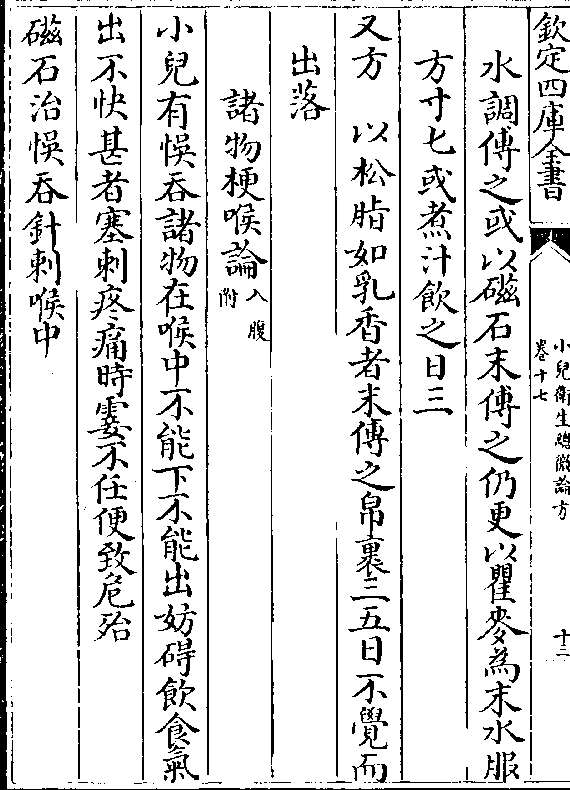 欽定四庫全書
小兒衛生總微論方
卷十七
十二
水調傅之或以磁石末傅之仍更以瞿麥為末水服
方寸匕或煮汁飲之日三
又方 以松脂如乳香者末傅之帛裹三五日不覺而
出落
諸物梗喉論入腹附
小兒有悮吞諸物在喉中不能下不能出妨碍飲食氣
出不快甚者塞刺疼痛時霎不任便致危殆
磁石治悮吞針刺喉中